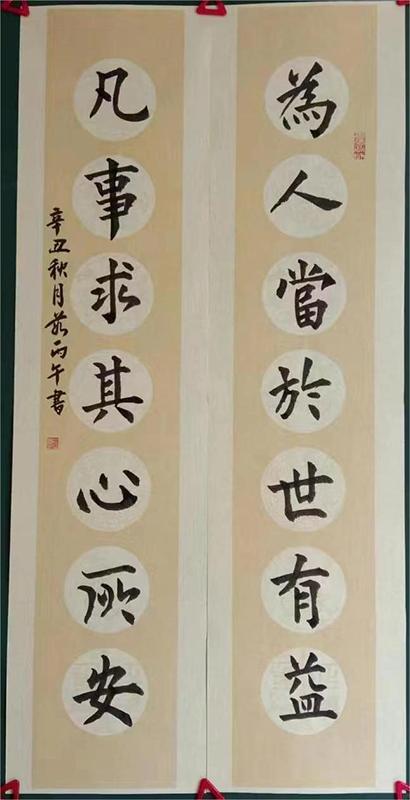 為人當於世有益
凡事求其心所安
辛丑秋月於丙午書